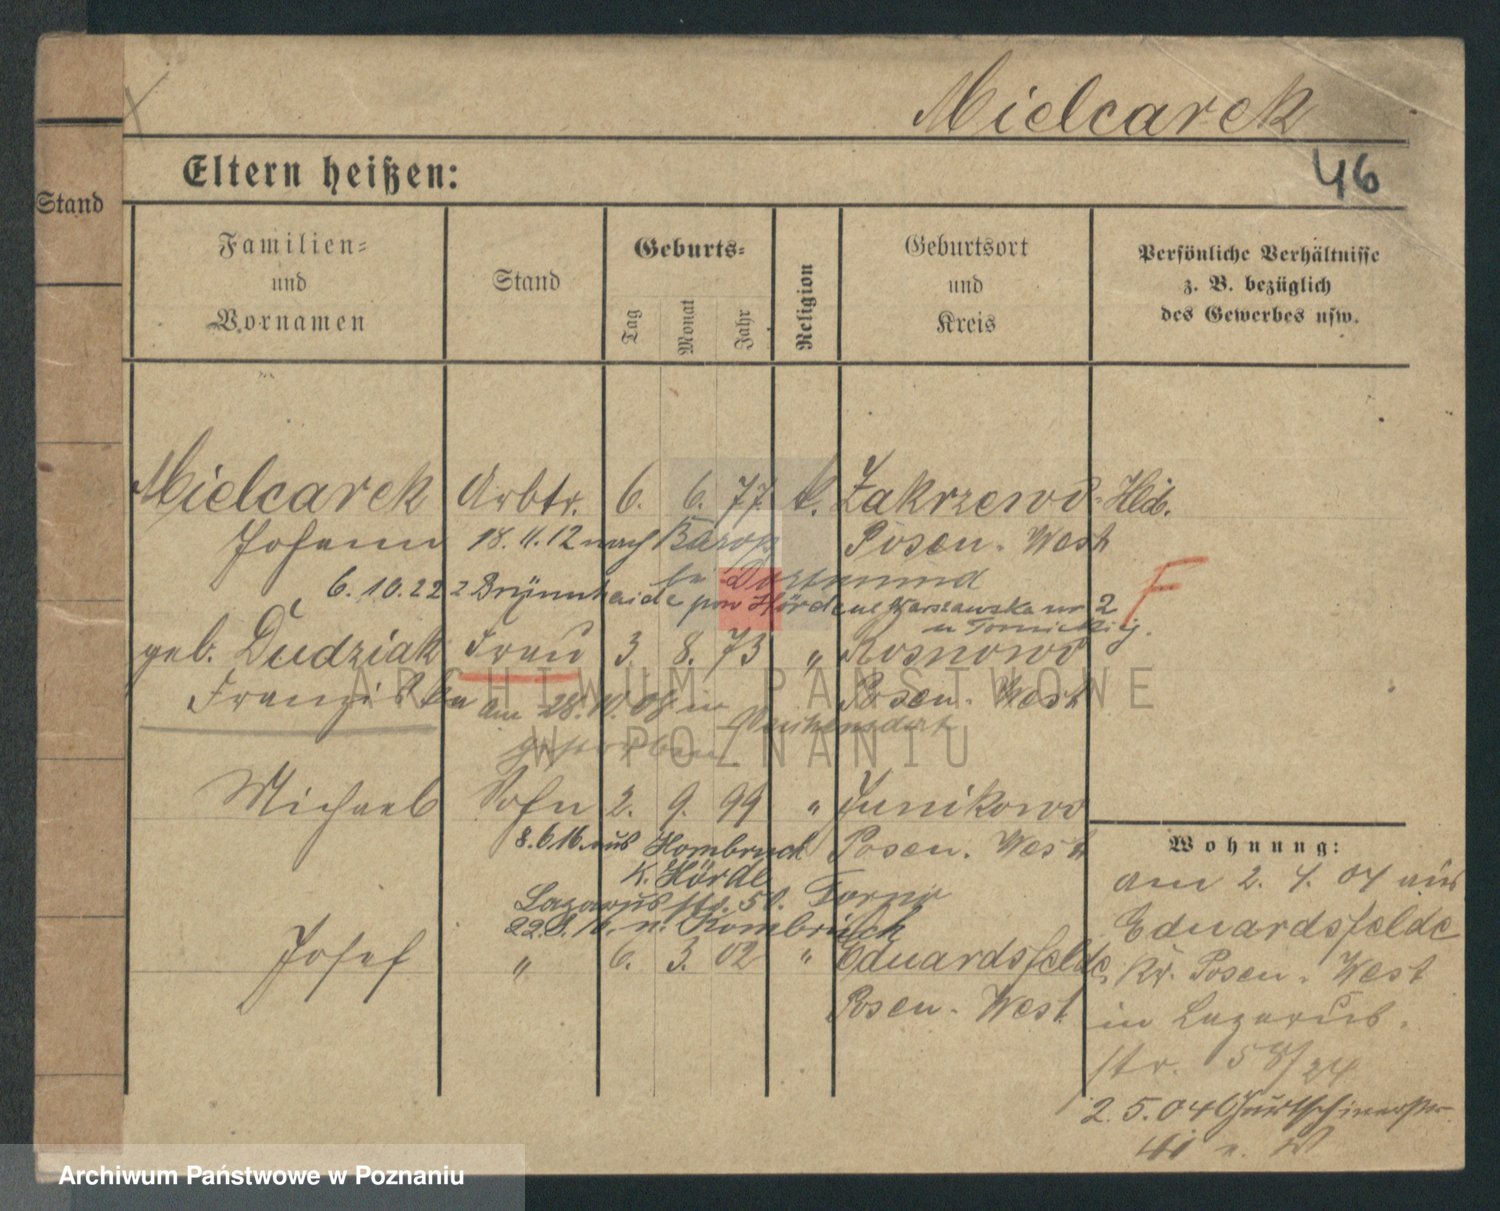 Mielcarek
46
Eltern heißen:
Stand
Familien-
und
Vornamen
Stand
Geburts-
Tag
Monat
Jahr
Religion
Geburtsort
und
Kreis
Persönliche Verhältnisse
z. B. bezüglich
des Gewerbes usw.
Mielcarek Arbtr. 6. 6. 77. k. Zakrzewo Hld.
Johann 18. 11. 12 nach Barop Posen-West
bei Dortmund
6. 10. 22 z Brünnheide pow Hörde ul Warszawska nr 2
F
geb. Dudziak Frau 3. 8. 73 " Rosnowo
Franziska Posen-West
am 28. 10. 08 in
gestorben
Michael Sohn 2. 9. 99 " Junikowo
8. 6. 16. aus Hombruch Posen-West
K. Hörde
Lazarus str. 50.
22. 8. 16. n. Hombruch
Josef " 6. 3. 02 " Eduardsfelde
Posen-West
Wohnung:
am 2. 4. 04 aus
Eduardsfelde
Kr. Posen-West
in Lazarus-
str. 58/24
2. 5. 04 Gurtschinerstr.
ARCHIWUM PAŃSTWOWE
W POZNANIU
Archiwum Państwowe w Poznaniu